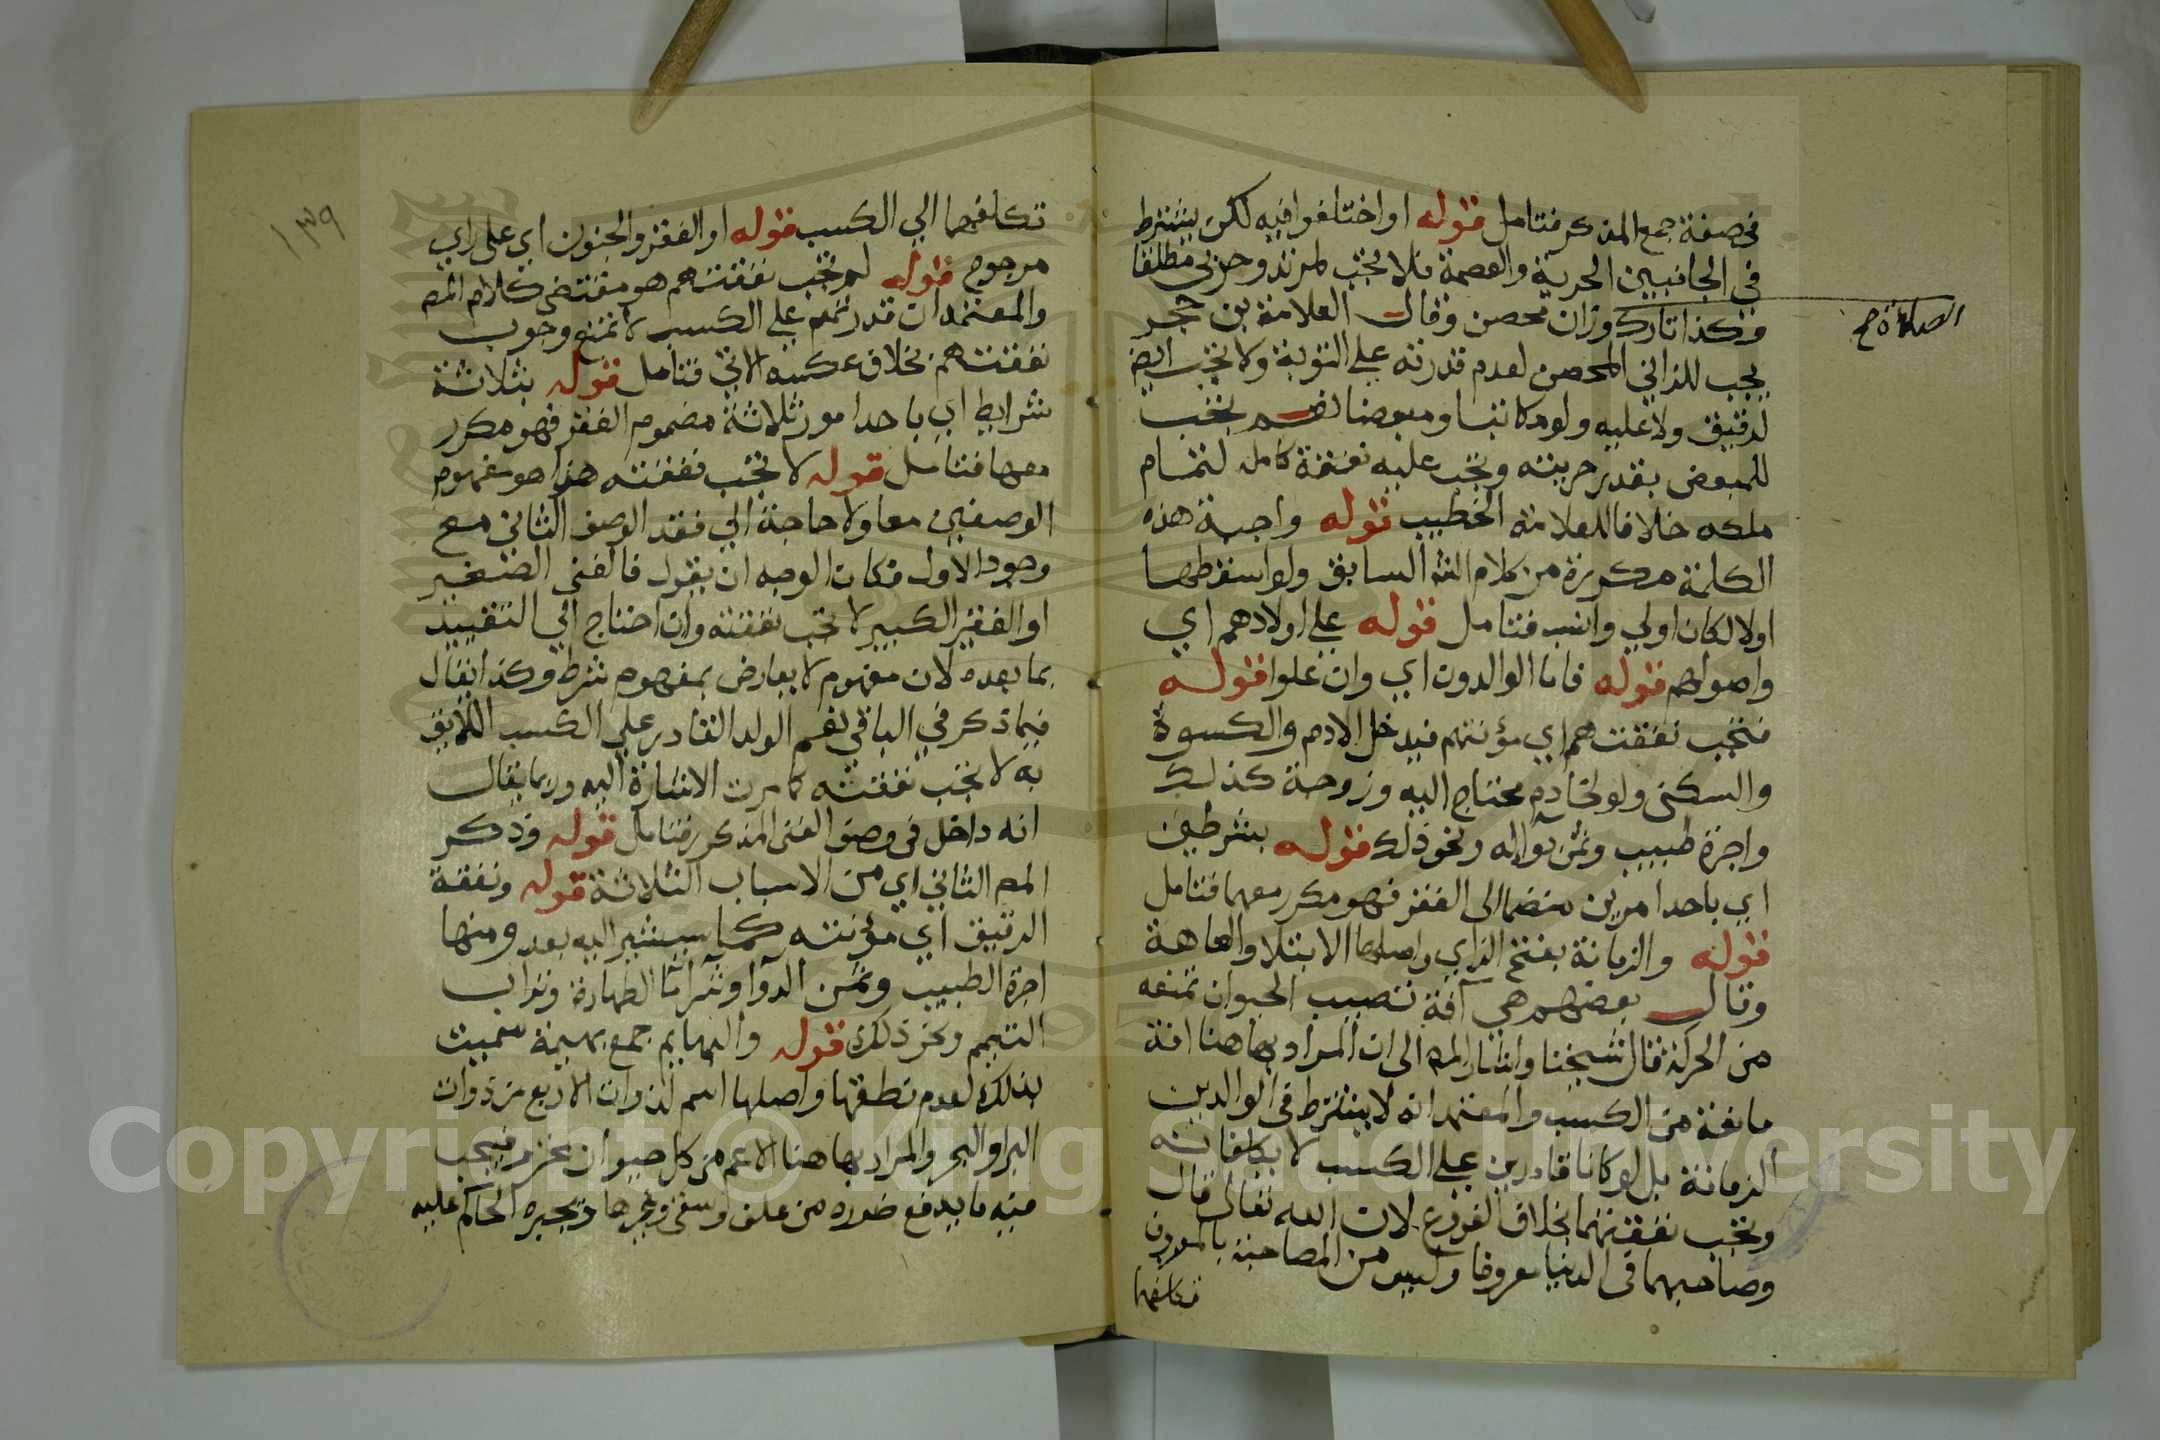 في صفة جمع المذكر فتامل قوله او اختلفوا فيه لكن يشترط
في الجانبين الحرية والعصمة فلا تجب لمرتد وحربي مطلقا
وكذا تارك وزان محصن وقال العلامة بن حجر
الصلاة صح
يجب للزاني المحصن لعدم قدرته علي التوبة ولا تجب ايضا
لرقيق ولا عليه ولو مكاتبا ومبعضا نعم تجب
للمبعض بقدر حريته وتجب عليه نفقة كامله لتمام
ملكه خلافا للعلامة الخطيب قوله واجبة هذه
الكلمة مكررة من كلام الش السابق ولو اسقطها
اولا لكان اولي وانسب فتامل قوله علي اولادهم اي
واصولهم قوله فاما الوالدون اي وان علوا قوله
فتجب نفقتهم اي مؤنتهم فيدخل الادم والكسوة
والسكنى ولو لخادم محتاج اليه وزوجة كذلك
واجرة طبيب وثمن دوا له ونحو ذلك قوله بشرطين
اي باحد امرين منضما الى الفقر فهو مكرر معهما فتامل
قوله والزمانة بفتح الزاي واصلها الابتلا والعاهة
وقال بعضهم هي آفة تصيب الحيوان تمنعه
من الحركة قال شيخنا واشار المص الى ان المراد بها هنا افة
مانعة من الكسب والمعتمد انه لا يشترط في الوالدين
الزمانة بل لو كانا قادرين علي الكسب لا يكلفانه
وتجب نفقتهما بخلاف الفروع لان الله تعالى قال
وصاحبهما في الدنيا معروفا وليس من المصاحبة بالمعروف
تكلفهما
١٣٩
تكلفهما الي الكسب قوله او الفقر والجنون اي على راي
مرجوح قوله لم تجب نفقتهم هو مقتضى كلام المص
والمعتمد ان قدرتهم علي الكسب لا تمنع وجوب
نفقتهم بخلاف عكسه الاتي فتامل قوله بثلاثة
شرايط اي باحد امور ثلاثة مضموم الفقر فهو مكرر
معها فتامل قوله لا تجب نفقته هذا هو مفهوم
الوصفين معا ولا حاجة الي فقد الوصف الثاني مع
وجود الاول فكان الوجه ان يقول فالغني الصغير
او الفقير الكبير لا تجب نفقته وان احتاج الي التقييد
بما بعده لان مفهوم لا يعارض بمفهوم شرط وكذا يقال
فيما ذكر في الباقي نعم الولد القادر علي الكسب اللايق
به لا تجب نفقته كما مرت الاشارة اليه وربما يقال
انه داخل في وصف الغنى المذكور فتامل قوله وذكر
المص الثاني اي من الاسباب الثلاثة قوله ونفقة
الرقيق اي مؤنته كما سيشير اليه بعد ومنها
اجرة الطبيب وثمن الدوا وشرا ما الطهارة وتراب
التيمم ونحو ذلك قوله والبهايم جمع بهيمة سميت
بذلك لعدم نطقها واصلها اسم لذوات الاربع من دواب
البر او البحر والمراد بها هنا الاعم من كل حيوان محترم فيجب
فيه ما يدفع ضرره من علف وسقي وغيرها ويجبره الحاكم عليه
Copyright © King Saud University